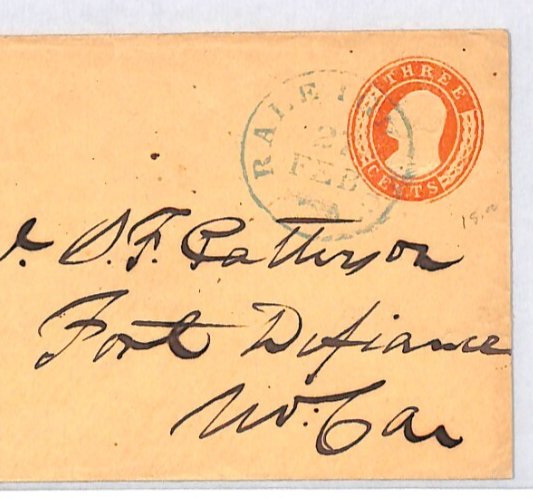 THREE
CENTS
RALEIGH
FEB
15.00
S. F. Patterson
Fort Defiance
No. Car